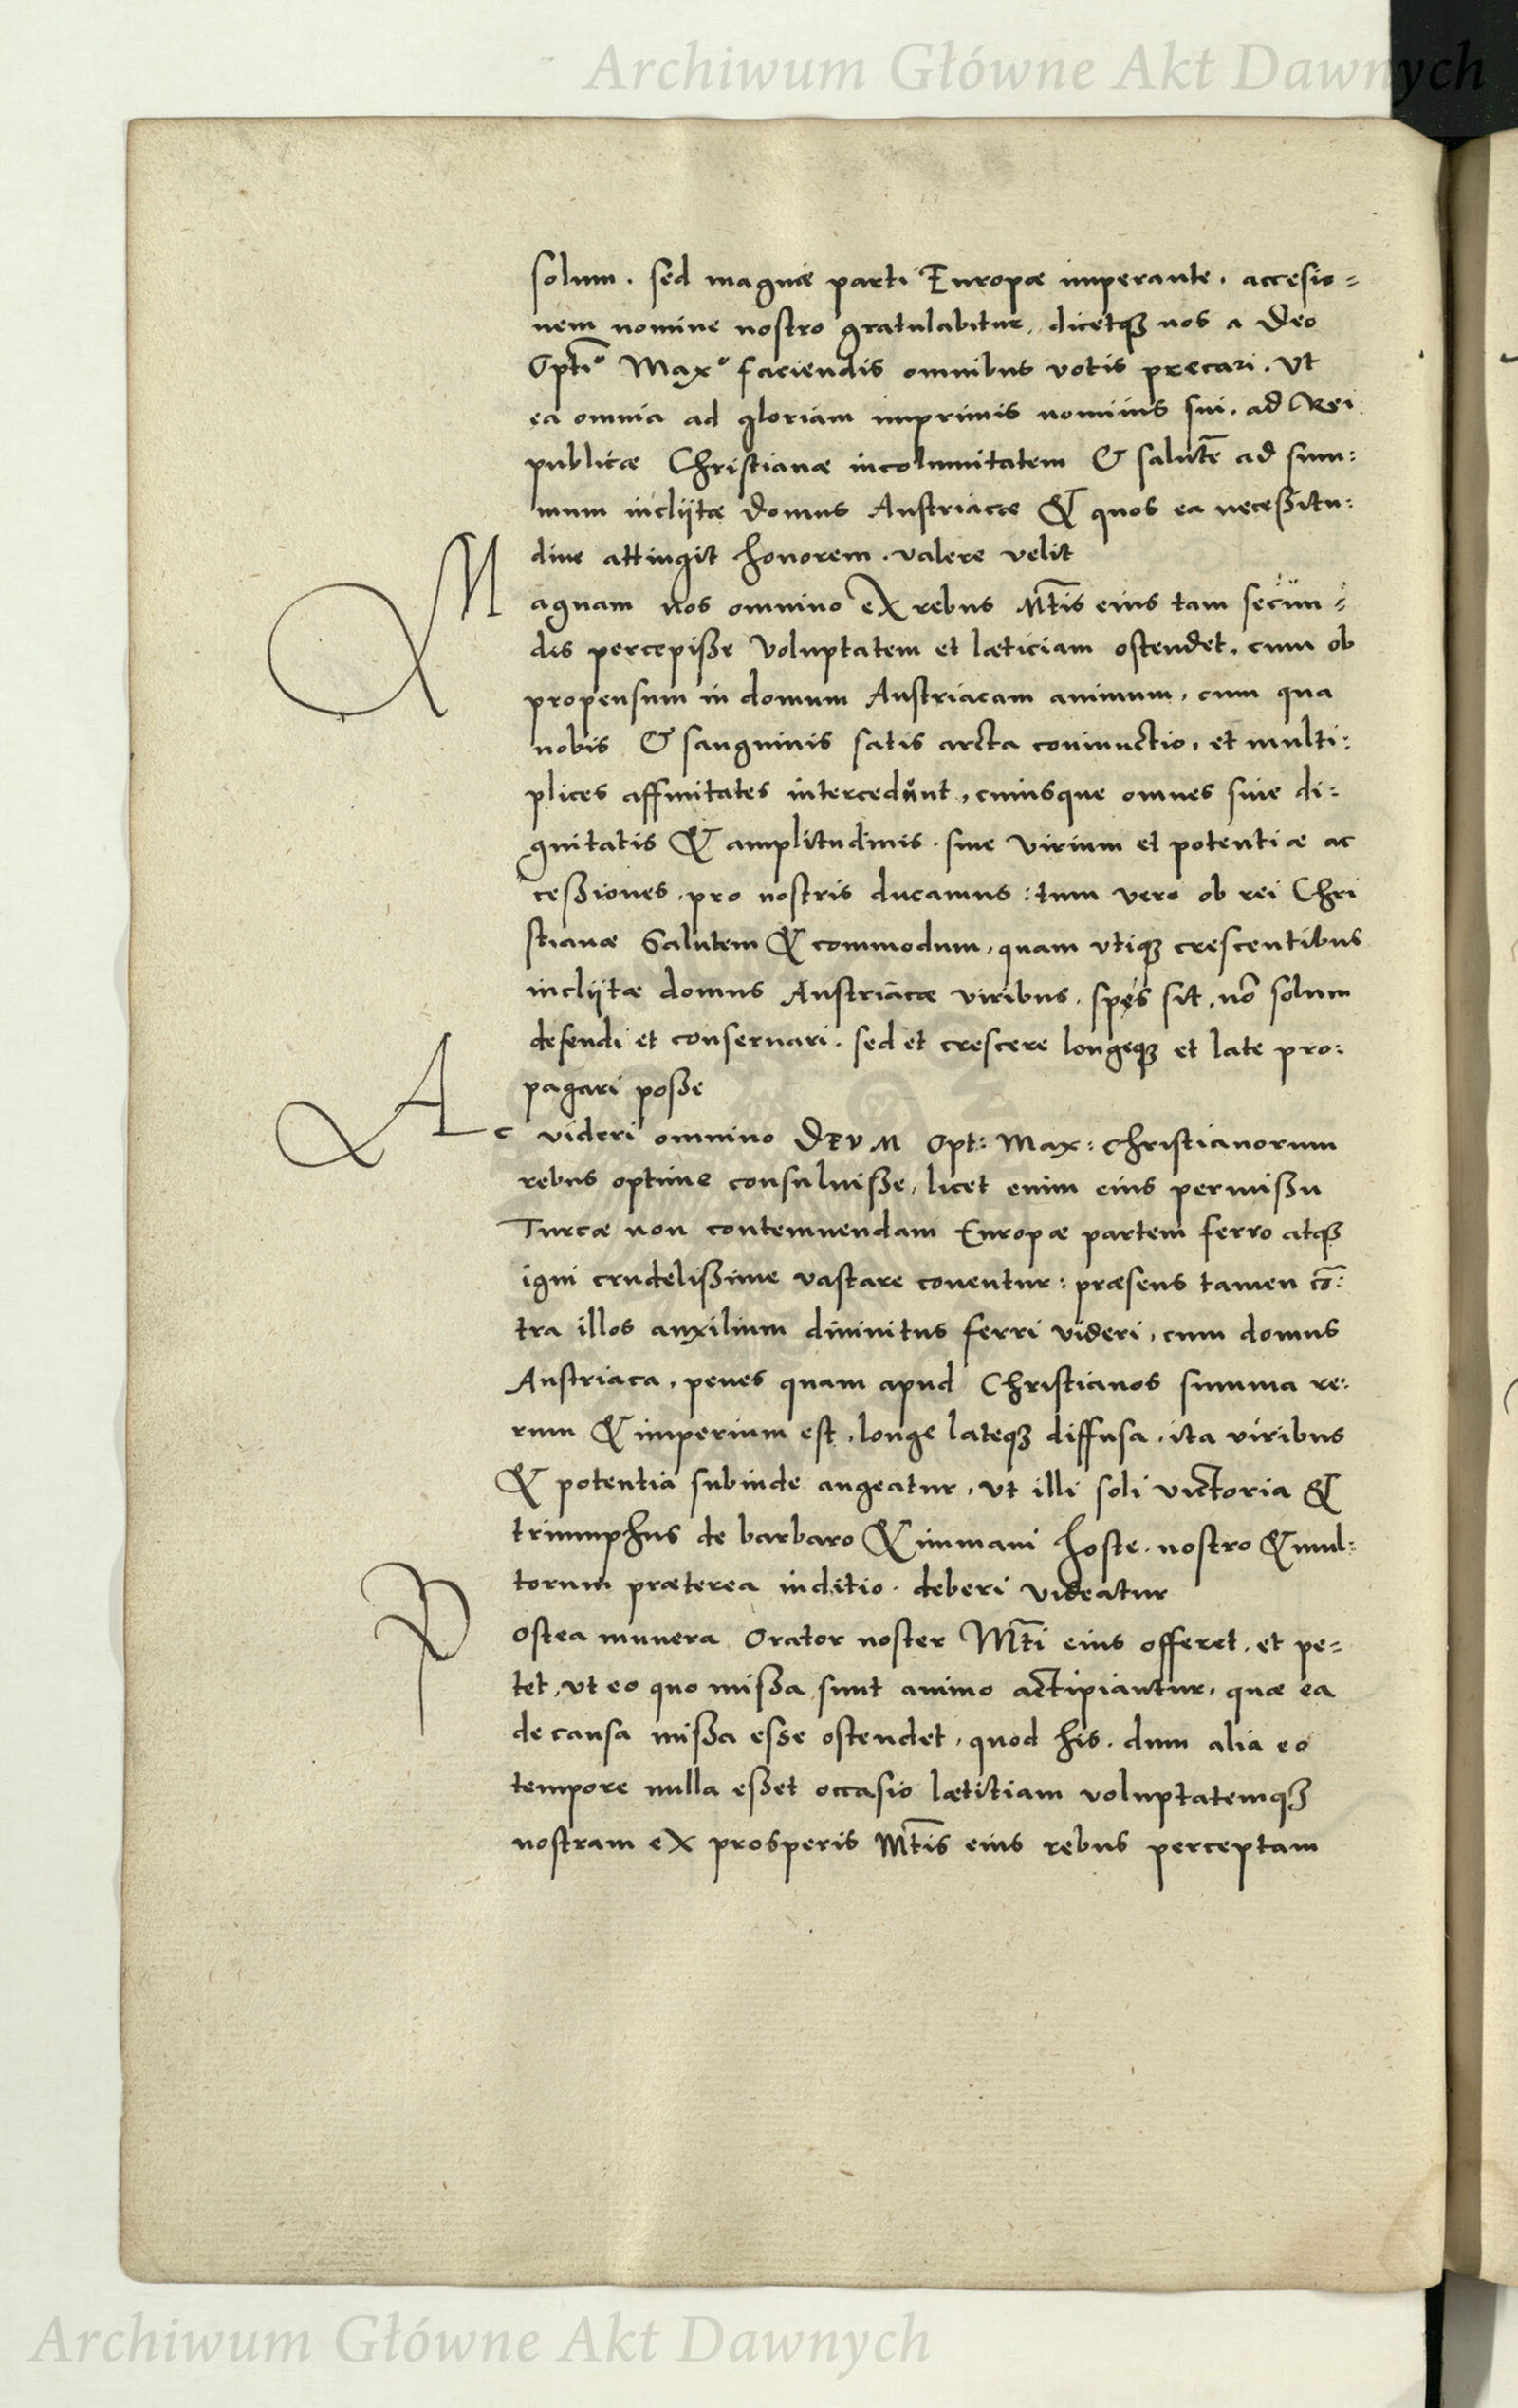 Archiwum Główne Akt Dawnych
solum. sed magnæ parti Europæ imperante. accesio=
nem nomine nostro gratulabitur. dicetqꝫ nos a Deo
Opti͂º Maxº faciendis omnibus votis precari. Vt
ea omnia ad gloriam imprimis nominis sui. ad Rei
publicæ Christianæ incolumitatem & salutē ad sum:
mum inclijtæ Domus Austriacæ & quos ea necessitu:
dine attingit honorem. valere velit
Magnam nos omnino ex rebus Mtis eius tam secun=
dis percepisse Voluptatem et læticiam ostendet. cum ob
propensum in domum Austriacam animum, cum qua
nobis & sanguinis satis arcta coniunctio, et multi:
plices affinitates intercedunt, cuiusque omnes siue di:
gnitatis & amplitudinis. siue virium et potentiæ ac
cessiones. pro nostris ducamus: tum vero ob rei Chri
stianæ Salutem & commodum, quam vtiqꝫ crescentibus
inclijtæ domus Austriacæ viribus. spes sit. nō solum
defendi et conseruari. sed et crescere longeqꝫ et late pro:
pagari posse
Ac videri omnino DEVM Opt: Max: Christianorum
rebus optime consuluisse, licet enim eius permissu
Turcæ non contemnendam Europæ partem ferro atqꝫ
igni crudelissime vastare conentur: præsens tamen cō:
tra illos auxilium diuinitus ferri videri, cum domus
Austriaca, penes quam apud Christianos summa re:
rum & imperium est, longe lateqꝫ diffusa, ita viribus
& potentia subinde augeatur, vt illi soli victoria &
triumphus de barbaro & immani hoste. nostro & mul:
torum præterea inditio. deberi videatur
Postea munera Orator noster Mti eius offeret. et pe=
tet, vt eo quo missa sunt animo actipiantur, quæ ea
de causa missa esse ostendet, quod his. dum alia eo
tempore nulla esset occasio lætitiam voluptatemqꝫ
nostram ex prosperis Mtis eius rebus perceptam
Archiwum Główne Akt Dawnych